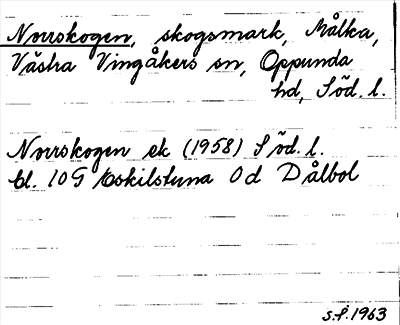 Norrskogen, skogsmark, Målka,
Västra Vingåkers sn, Oppunda
hd, Söd. l.
Norrskogen ek (1958) Söd. l.
bl. 10 G Eskilstuna Od Dålbol
S.F. 1963